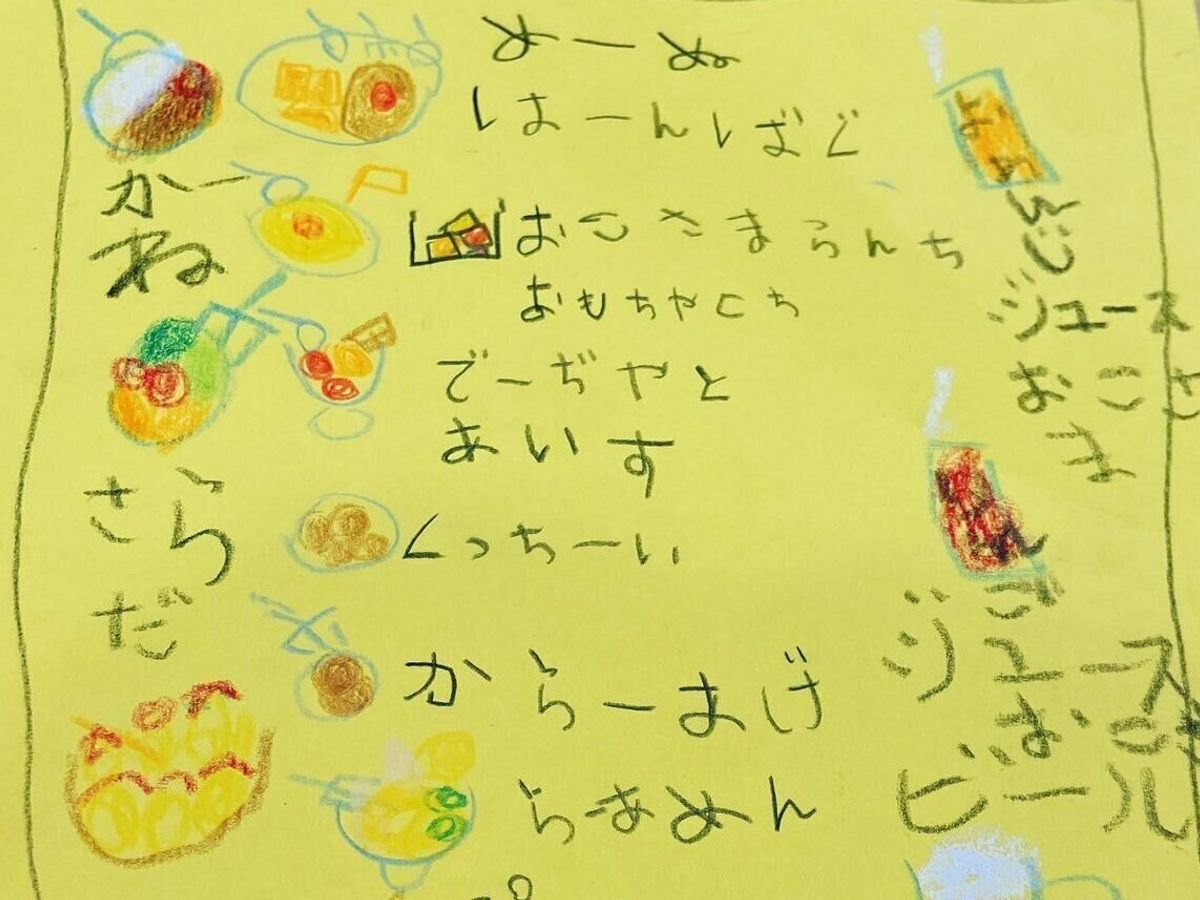 めーぬ
はーんばぐ
かー
ね
おこさまらんち
おもちゃくち
でーぢやと
あいす
さら
だ
くっちーい
からーあげ
らあめん
ジュース
おこさ
ま
ジュース
おこさ
ビール